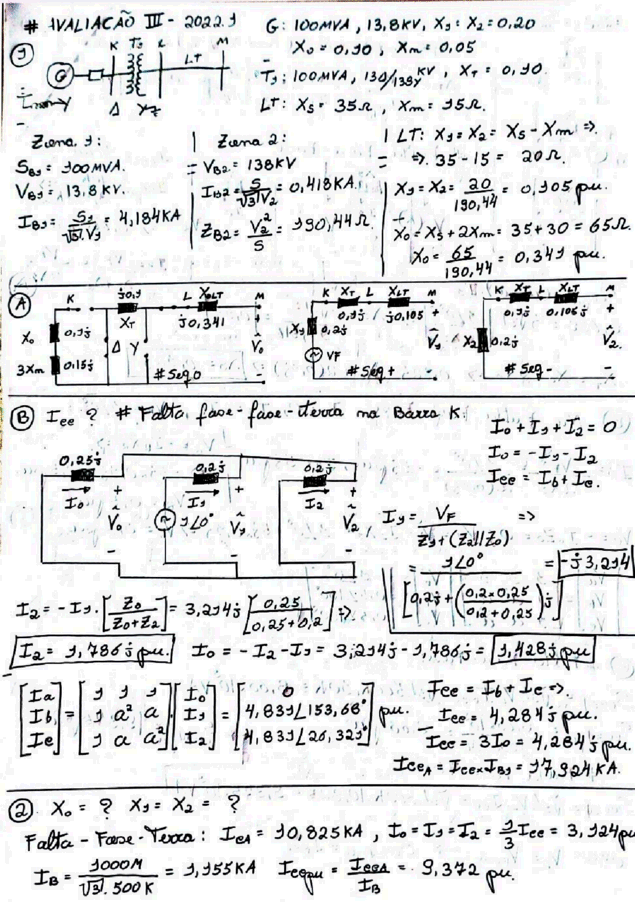 # AVALIAÇÃO III - 2022.1
G: 100MVA, 13,8KV, X1 = X2 = 0,20
X0 = 0,10, Xm = 0,05
① K T1 L LT M
G
Δ
T1: 100MVA, 138Y KV, XT = 0,10.
LT: XS = 35Ω, Xm = 15Ω.
Zona 1:
SB1 = 100MVA.
VB1 = 13,8 KV.
IB1 = S1/√3.V1 = 4,184KA
Zona 2:
VB2 = 138KV
IB2 = S/√3V2 = 0,418KA.
ZB2 = V2²/S = 190,44Ω
LT: X1 = X2 = XS - Xm =>
=> 35 - 15 = 20Ω.
X1 = X2 = 20/190,44 = 0,105 pu.
X0 = XS + 2Xm = 35 + 30 = 65Ω
X0 = 65/190,44 = 0,341 pu.
Ⓐ K j0,1 L X0LT M
XT j0,341
X0 0,1j
3Xm 0,15j
Δ Y
+ V0 -
# Seq 0
K XT L XLT M
0,1j j0,105
X1 0,2j
VF
+ V1 -
# Seq +
K XT L XLT M
0,1j 0,105j
X2 0,2j
+ V2 -
# Seq -
Ⓑ Icc ? # Falta fase-fase-terra na Barra K.
I0 + I1 + I2 = 0
I0 = -I1 - I2
Icc = Ib + Ic.
0,25j 0,2j 0,2j
I0 + V0 - I1 + V1 - I2 + V2 -
1∠0°
I1 = VF/Z1 + (Z2//Z0) =>
= 1∠0°/[0,2j + (0,2×0,25/0,2+0,25)j] = -j3,214
I2 = -I1.[Z0/Z0+Z2] = 3,214j [0,25/0,25+0,2] =>
I2 = 1,786j pu. I0 = -I2 - I1 = 3,214j - 1,786j = 1,428j pu.
[Ia Ib Ic] = [1 1 1 1 a² a 1 a a²].[I0 I1 I2] = [0 4,831∠153,68° 4,831∠26,32°] pu.
Icc = Ib + Ic =>.
Icc = 4,284j pu.
Icc = 3I0 = 4,284j pu.
IccA = Icc×IB1 = 17,924 KA.
② X0 = ? X1 = X2 = ?
Falta - Fase - Terra: IccA = 10,825KA, I0 = I1 = I2 = 1/3 Icc = 3,124pu
IB = 1000M/√3.500K = 1,155KA Iccpu = IccA/IB = 9,372 pu.